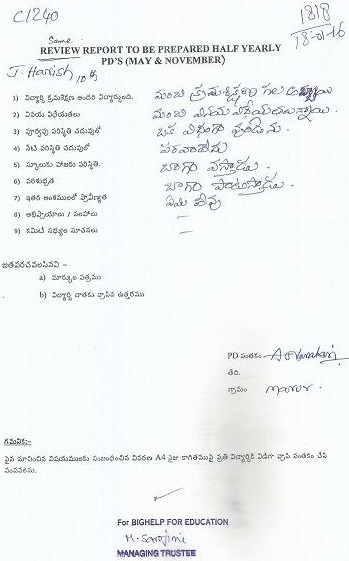 C1240
1818
18-01-16
Same
REVIEW REPORT TO BE PREPARED HALF YEARLY
PD'S (MAY & NOVEMBER)
J. Harish 10th
1) విద్యార్థి క్రమశిక్షణ అందరి విద్యార్థులంది. మంచి క్రమశిక్షణ గల అబ్బాయి
2) వినయ విధేయతలు మంచి వినయ విధేయతలున్నాయి.
3) పూర్వపు పరిస్థితి చదువులో ఒక విధంగా వుండెను.
4) నేటి పరిస్థితి చదువులో పరవాలేదు
5) స్కూలుకు హాజరు పరిస్థితి. బాగా వస్తాడు.
6) పరిశుభ్రత బాగా పాటిస్తాడు.
7) ఇతర అంశములలో ప్రావీణ్యత ఏమి లేవు
8) అభిప్రాయాలు / సలహాలు –
9) కమిటీ సభ్యుల సూచనలు –
జతపరచవలసినవి –
a) మార్కుల పత్రము
b) విద్యార్థి దాతకు వ్రాసిన ఉత్తరము
PD సంతకం
తేది.
గ్రామం
గమనిక:-
పైన సూచించిన విషయములకు సంబంధించిన వివరణ A4 సైజు కాగితముపై ప్రతి విద్యార్థికి విడిగా వ్రాసి సంతకం చేసి
పంపవలెను.
For BIGHELP FOR EDUCATION
M. Sarojini
MANAGING TRUSTEE